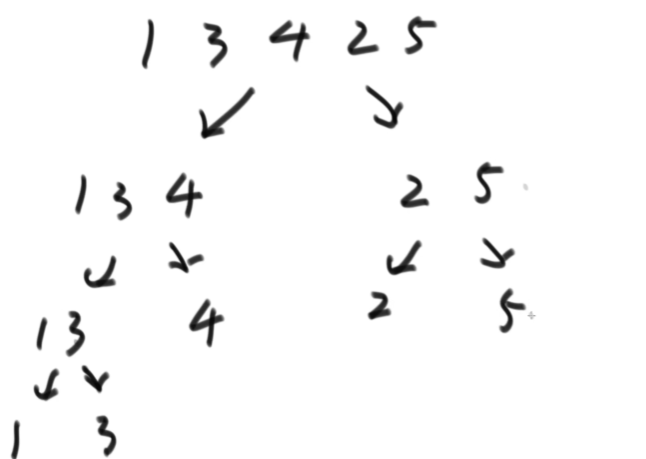 1 3 4 2 5
1 3 4 2 5
1 3 4 2 5
1 3